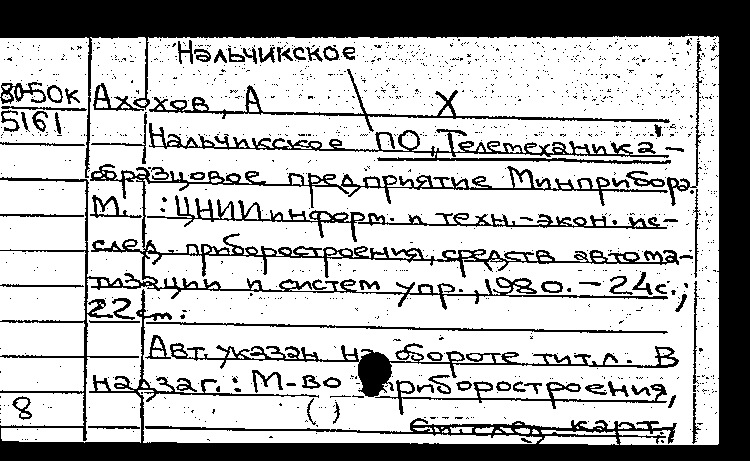 Нальчикское
80-50к
5161
Ахохов, А
X
Нальчикское ПО „Телемеханика"-
образцовое предприятие Минприбора.
М. : ЦНИИинформ. и техн.-экон. ис-
след. приборостроения, средств автома-
тизации и систем упр., 1980. - 24с.;
22 см.
Авт. указан на обороте тит.л. В
надзаг.: М-во приборостроения,
8
( )
См. след. карт.